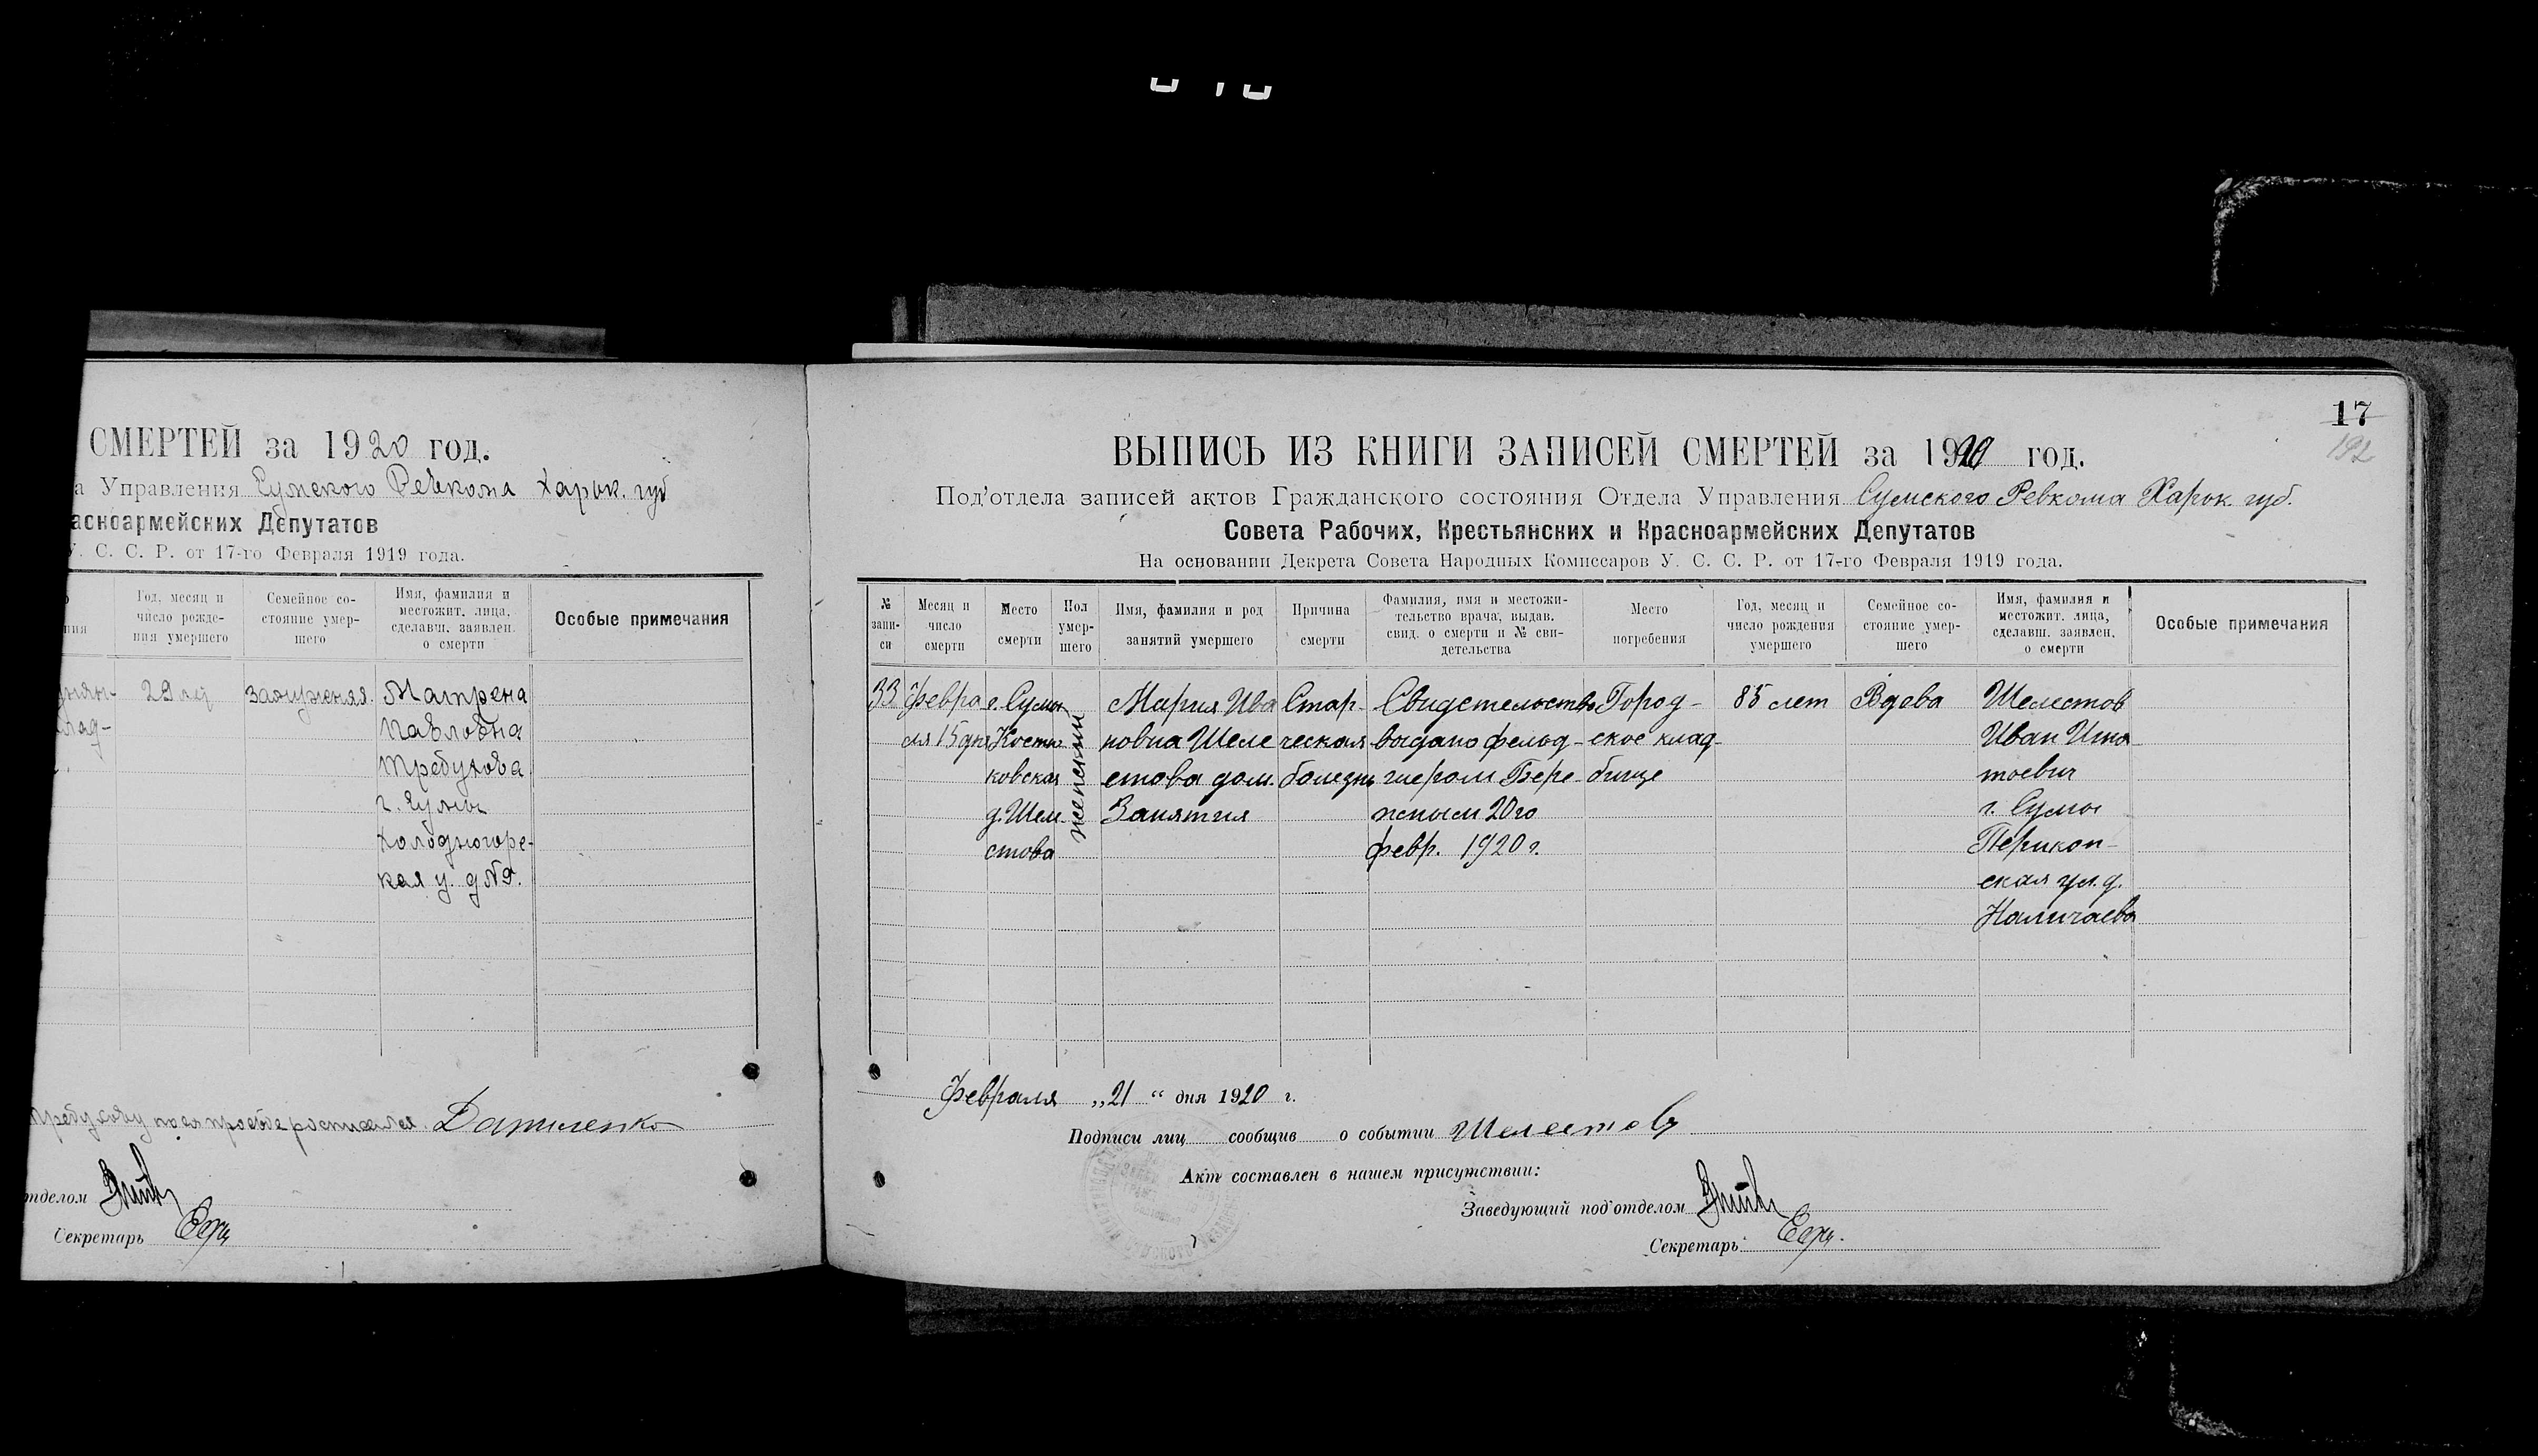 СМЕРТЕЙ за 1920 год.
а Управления Сумского Ревкома Харьк. губ
асноармейских Депутатов
У. С. С. Р. от 17-го Февраля 1919 года.
ния
Год, месяц и
число рожде-
ния умершего
Семейное со-
стояние умер-
шего
Имя, фамилия и
местожит. лица,
сделавш. заявлен.
о смерти
Особые примечания
29 лет
Замужняя.
Матрена
Павловна
Требухова
г. Сумы
Холодногорс-
кая у. д №9.
Даниленко
отделом
Секретарь
17
192
ВЫПИСЬ ИЗ КНИГИ ЗАПИСЕЙ СМЕРТЕЙ за 1920 год.
Под'отдела записей актов Гражданского состояния Отдела Управления Сумского Ревкома Харьк. губ.
Совета Рабочих, Крестьянских и Красноармейских Депутатов
На основании Декрета Совета Народных Комиссаров У. С. С. Р. от 17-го Февраля 1919 года.
№
запи-
си
Месяц и
число
смерти
Место
смерти
Пол
умер-
шего
Имя, фамилия и род
занятий умершего
Причина
смерти
Фамилия, имя и местожи-
тельство врача, выдав.
свид. о смерти и № сви-
детельства
Место
погребения
Год, месяц и
число рождения
умершего
Семейное со-
стояние умер-
шего
Имя, фамилия и
местожит. лица,
сделавш. заявлен.
о смерти
Особые примечания
33
Февра
ля 15 дня
г. Сумы
ковская
д. Шеле
стова
женский
Мария Ива
новна Шеле
стова дом.
Занятия
Стар-
ческая
болезнь
Свидетельство
выдано фельд-
шером Бере
жным 20го
февр. 1920 г.
Город-
ское клад-
бище
85 лет
Вдова
Шелестов
Иван Игна
тоевич
г. Сумы
Перикоп-
ская ул. д.
Наличаева
Февраля „21 “ дня 1920 г.
Подписи лиц сообщив о событии Шелестов
Акт составлен в нашем присутствии:
Заведующий под'отделом
Секретарь